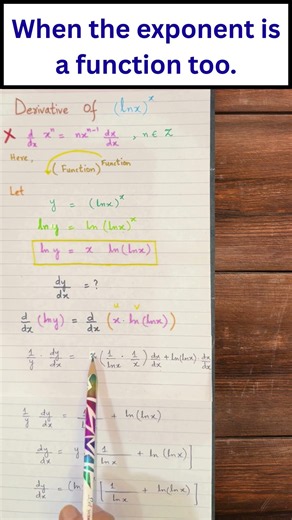 When the exponent is
a function too.
Derivative of (lnx)^x
✗ d/dx x^n = nx^(n-1) dx/dx , n ∈ Z
Here,
(Function)^Function
Let
y = (lnx)^x
ln y = ln (lnx)^x
ln y = x ln (lnx)
dy/dx = ?
u v
d/dx (lny) = d/dx (x · ln (lnx))
1/y · dy/dx = x (1/lnx · 1/x) dx/dx + ln(lnx) dx/dx
1/y dy/dx = + ln (lnx)
dy/dx = y [1/lnx + ln (lnx)]
dy/dx = (ln [1/lnx + ln(lnx)]